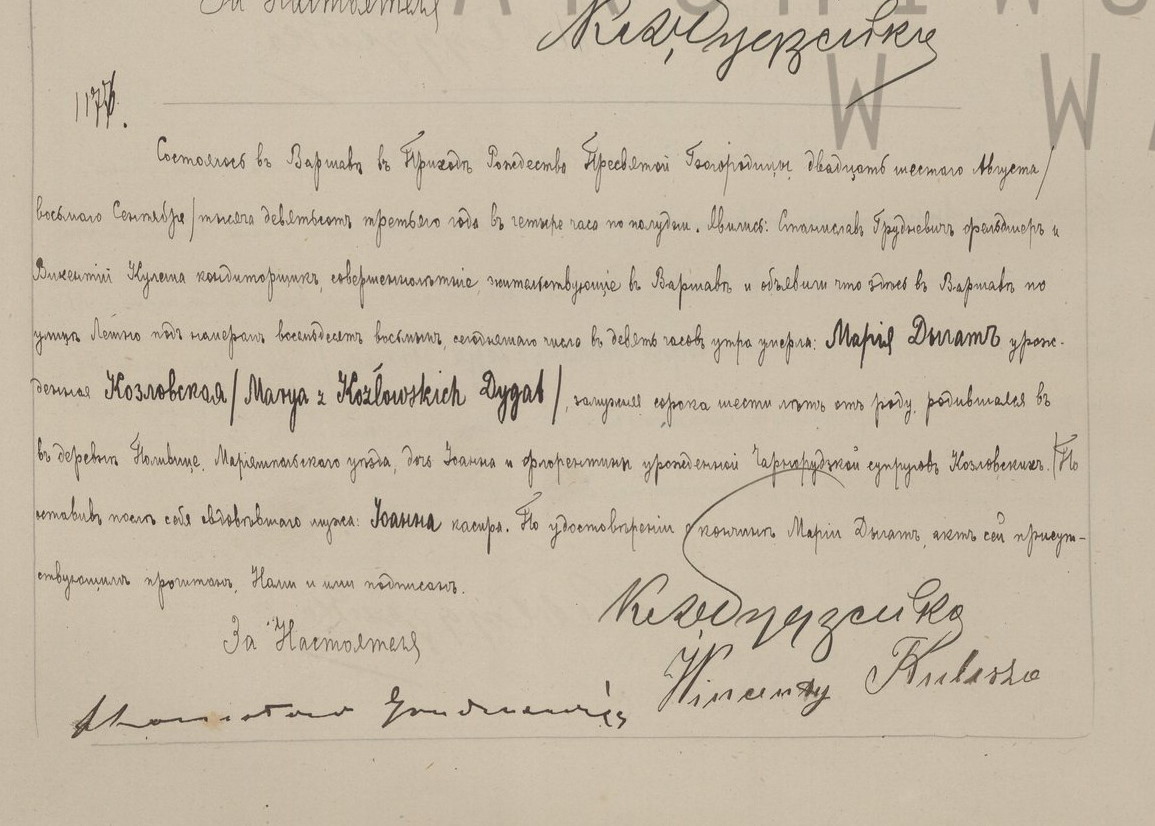 За Настоятеля
W W
1177.
Состоялось въ Варшавѣ въ Приходѣ Рождество Пресвятой Богородицы двадцать шестаго Августа/
восьмаго Сентября/тысяча девятьсотъ третьяго года въ четыре часа по полудни. Явились: Станиславъ Грудневичъ фельдшеръ и
Викентій Кулеша кондиторщикъ, совершеннолѣтніе, жительствующіе въ Варшавѣ и объявили что здѣсь въ Варшавѣ по
улицѣ Лешно подъ номеромъ восемьдесятъ восьмымъ, сегодняшаго числа въ девять часовъ утра умерла: Марія Дыгатъ урож-
денная Козловская/Marya z Kozłowskich Dygat/, замужняя сорока шести лѣтъ отъ роду, родившаяся въ
въ деревнѣ Маріямпольскаго уѣзда, дочь Іоанна и Флорентины урожденной супруговъ Козловскихъ. По
оставивъ послѣ себя овдовѣвшаго мужа: Іоанна касира. По удостовѣреніи о кончинѣ Маріи Дыгатъ, актъ сей присут-
ствующимъ прочитанъ, Нами и ими подписанъ.
За Настоятеля
Wincenty Kulesza